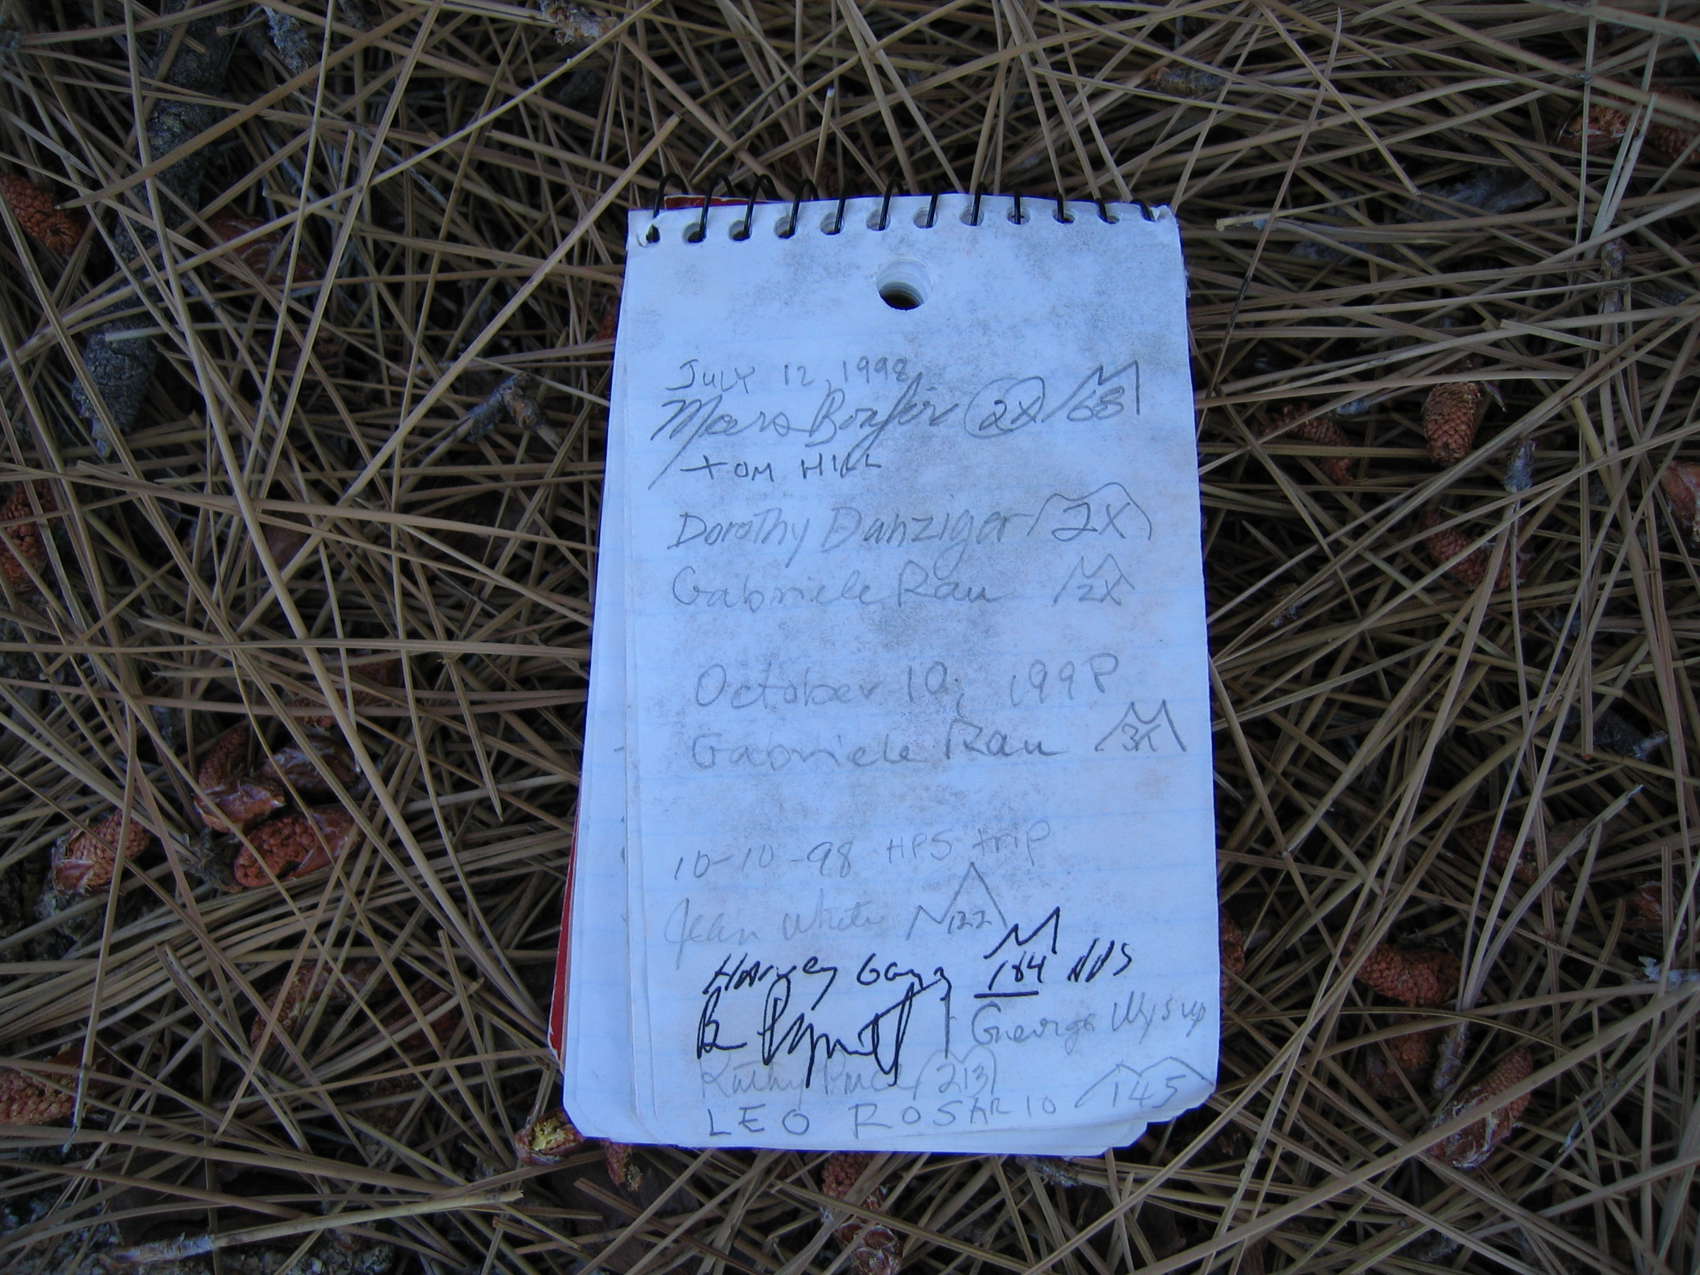 JULY 12, 1998
Mars Bonfire 2X 68
+ TOM HILL
Dorothy Danziger 2X
Gabriele Rau 2X
October 10, 1998
Gabriele Rau 3X
10-10-98 HPS trip
Jean White 122
Harvey Gang 184
George Wysup
Kathy Price 213
LEO ROSARIO 145